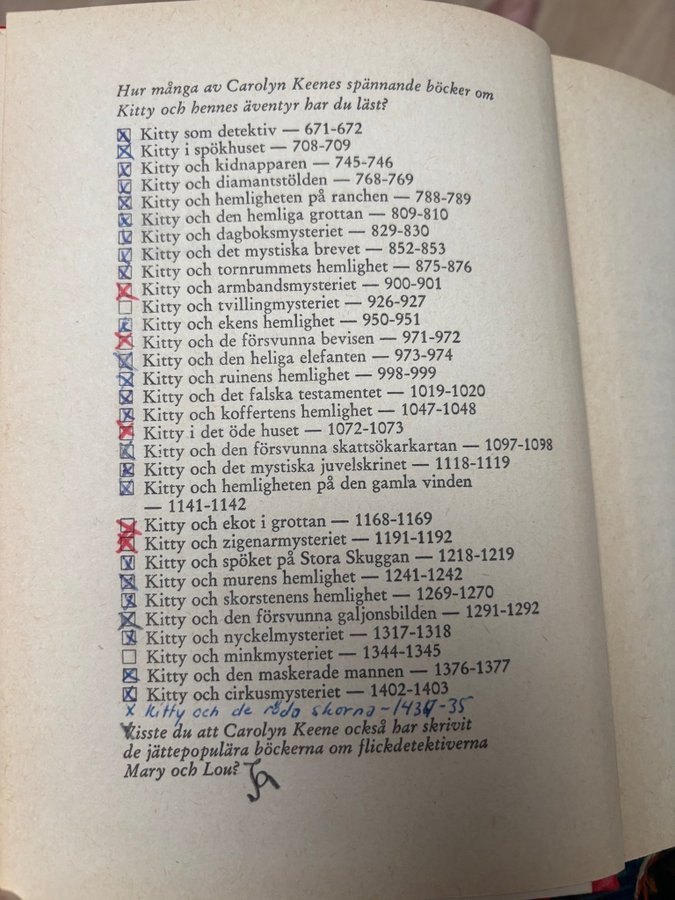 Hur många av Carolyn Keenes spännande böcker om
Kitty och hennes äventyr har du läst?
Kitty som detektiv — 671-672
Kitty i spökhuset — 708-709
Kitty och kidnapparen — 745-746
Kitty och diamantstölden — 768-769
Kitty och hemligheten på ranchen — 788-789
Kitty och den hemliga grottan — 809-810
Kitty och dagboksmysteriet — 829-830
Kitty och det mystiska brevet — 852-853
Kitty och tornrummets hemlighet — 875-876
Kitty och armbandsmysteriet — 900-901
Kitty och tvillingmysteriet — 926-927
Kitty och ekens hemlighet — 950-951
Kitty och de försvunna bevisen — 971-972
Kitty och den heliga elefanten — 973-974
Kitty och ruinens hemlighet — 998-999
Kitty och det falska testamentet — 1019-1020
Kitty och koffertens hemlighet — 1047-1048
Kitty i det öde huset — 1072-1073
Kitty och den försvunna skattsökarkartan — 1097-1098
Kitty och det mystiska juvelskrinet — 1118-1119
Kitty och hemligheten på den gamla vinden
— 1141-1142
Kitty och ekot i grottan — 1168-1169
Kitty och zigenarmysteriet — 1191-1192
Kitty och spöket på Stora Skuggan — 1218-1219
Kitty och murens hemlighet — 1241-1242
Kitty och skorstenens hemlighet — 1269-1270
Kitty och den försvunna galjonsbilden — 1291-1292
Kitty och nyckelmysteriet — 1317-1318
Kitty och minkmysteriet — 1344-1345
Kitty och den maskerade mannen — 1376-1377
Kitty och cirkusmysteriet — 1402-1403
x Kitty och de röda skorna - 1434-35
Visste du att Carolyn Keene också har skrivit
de jättepopulära böckerna om flickdetektiverna
Mary och Lou? Ja